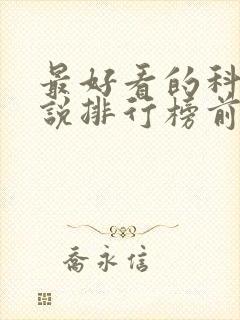 最好看的科
說排行榜前
喬永信